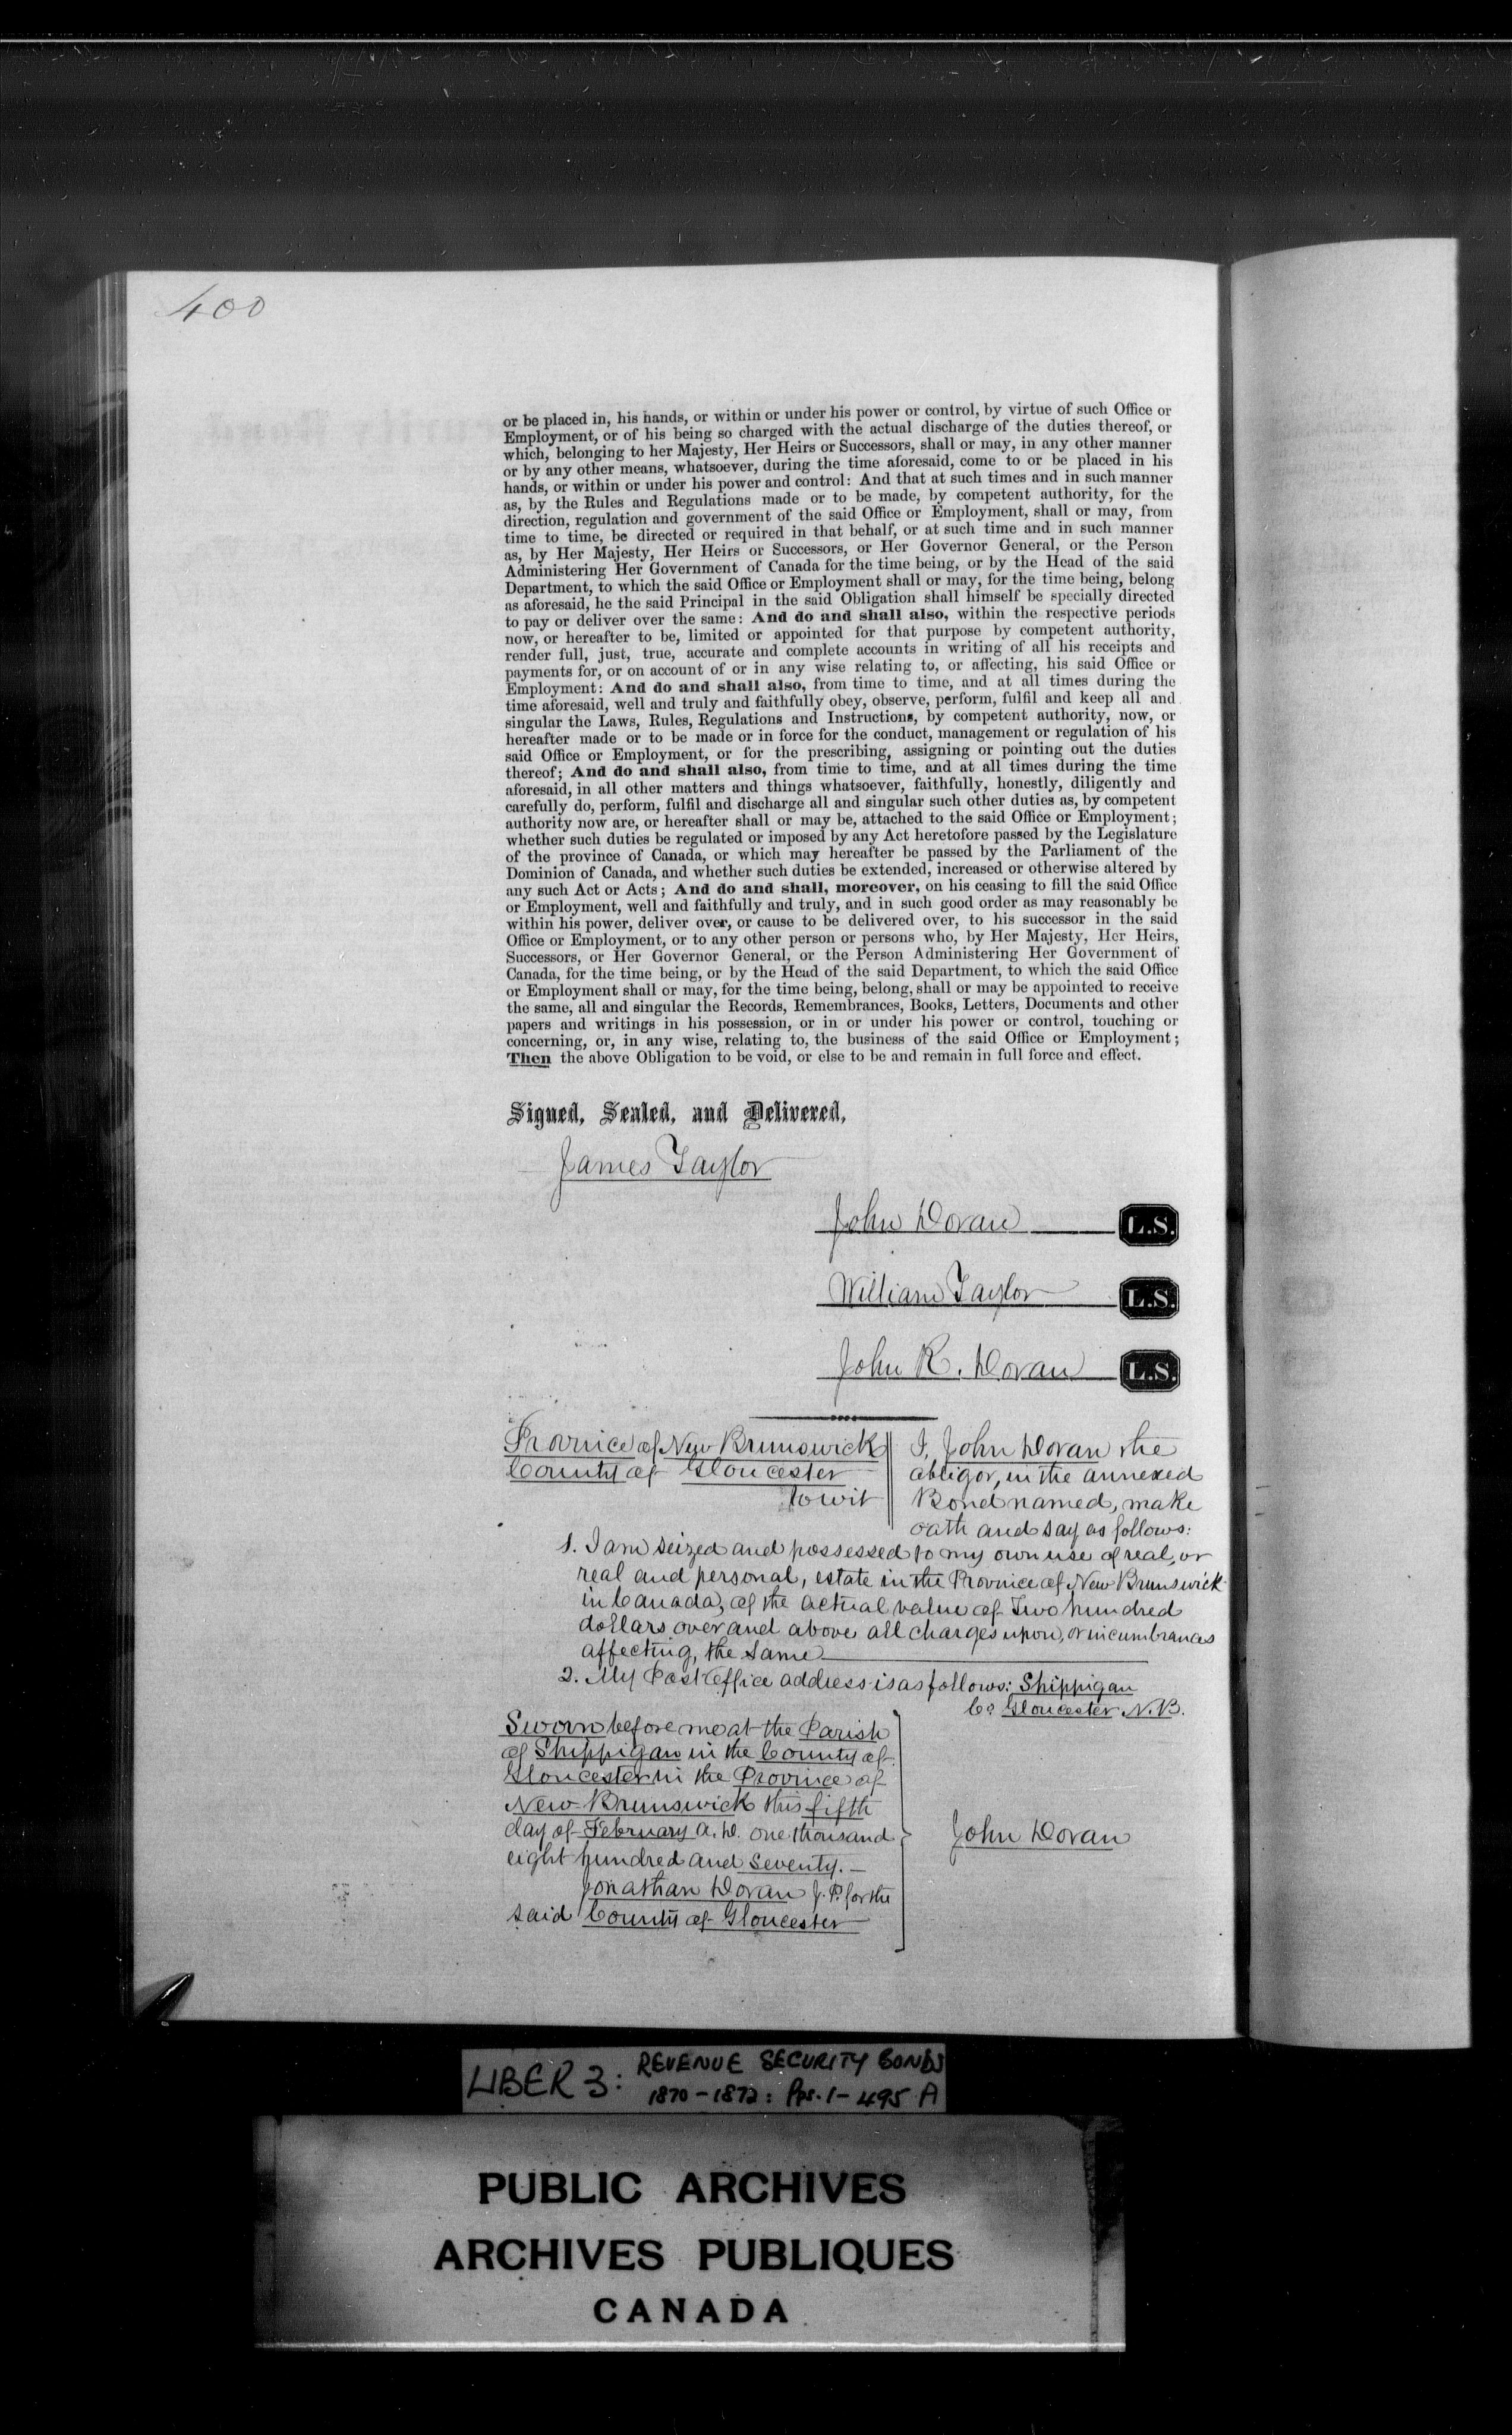 400
or be placed in, his hands, or within or under his power or control, by virtue of such Office or
Employment, or of his being so charged with the actual discharge of the duties thereof, or
which, belonging to her Majesty, Her Heirs or Successors, shall or may, in any other manner
or by any other means, whatsoever, during the time aforesaid, come to or be placed in his
hands, or within or under his power and control: And that at such times and in such manner
as, by the Rules and Regulations made or to be made, by competent authority, for the
direction, regulation and government of the said Office or Employment, shall or may, from
time to time, be directed or required in that behalf, or at such time and in such manner
as, by Her Majesty, Her Heirs or Successors, or Her Governor General, or the Person
Administering Her Government of Canada for the time being, or by the Head of the said
Department, to which the said Office or Employment shall or may, for the time being, belong
as aforesaid, he the said Principal in the said Obligation shall himself be specially directed
to pay or deliver over the same: And do and shall also, within the respective periods
now, or hereafter to be, limited or appointed for that purpose by competent authority,
render full, just, true, accurate and complete accounts in writing of all his receipts and
payments for, or on account of or in any wise relating to, or affecting, his said Office or
Employment: And do and shall also, from time to time, and at all times during the
time aforesaid, well and truly and faithfully obey, observe, perform, fulfil and keep all and
singular the Laws, Rules, Regulations and Instructions, by competent authority, now, or
hereafter made or to be made or in force for the conduct, management or regulation of his
said Office or Employment, or for the prescribing, assigning or pointing out the duties
thereof; And do and shall also, from time to time, and at all times during the time
aforesaid, in all other matters and things whatsoever, faithfully, honestly, diligently and
carefully do, perform, fulfil and discharge all and singular such other duties as, by competent
authority now are, or hereafter shall or may be, attached to the said Office or Employment;
whether such duties be regulated or imposed by any Act heretofore passed by the Legislature
of the province of Canada, or which may hereafter be passed by the Parliament of the
Dominion of Canada, and whether such duties be extended, increased or otherwise altered by
any such Act or Acts; And do and shall, moreover, on his ceasing to fill the said Office
or Employment, well and faithfully and truly, and in such good order as may reasonably be
within his power, deliver over, or cause to be delivered over, to his successor in the said
Office or Employment, or to any other person or persons who, by Her Majesty, Her Heirs,
Successors, or Her Governor General, or the Person Administering Her Government of
Canada, for the time being, or by the Head of the said Department, to which the said Office
or Employment shall or may, for the time being, belong, shall or may be appointed to receive
the same, all and singular the Records, Remembrances, Books, Letters, Documents and other
papers and writings in his possession, or in or under his power or control, touching or
concerning, or, in any wise, relating to, the business of the said Office or Employment;
Then the above Obligation to be void, or else to be and remain in full force and effect.
Signed, Sealed, and Delivered,
James Taylor
John Doran L.S.
William Taylor L.S.
John R. Doran L.S.
Province of New Brunswick
County of Gloucester
To wit
I, John Doran the
obligor, in the annexed
Bond named, make
oath and say as follows:
1. I am seized and possessed to my own use of real, or
real and personal, estate in the Province of New Brunswick
in Canada, of the actual value of Two hundred
dollars over and above all charges upon, or incumbrances
affecting, the same
2. My Post Office address is as follows: Shippigan
Co. Gloucester N.B.
Sworn before me at the Parish
of Shippigan in the County of
Gloucester in the Province of
New Brunswick this fifth
day of February A.D. one thousand
eight hundred and seventy. —
Jonathan Doran J.P. for the
said County of Gloucester
John Doran
LIBER 3: REVENUE SECURITY BONDS
1870-1872: Pps. 1-495 A
PUBLIC ARCHIVES
ARCHIVES PUBLIQUES
CANADA